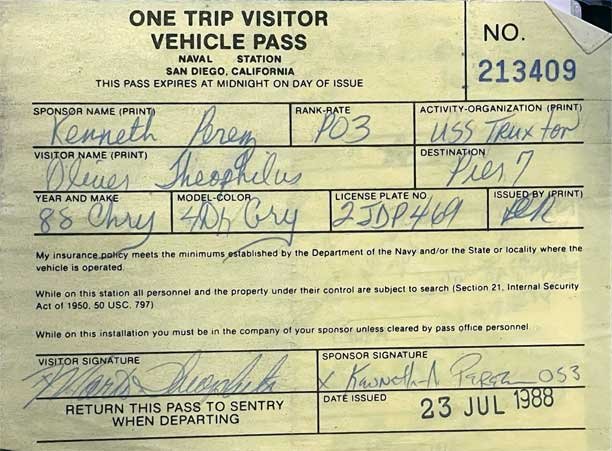 ONE TRIP VISITOR
VEHICLE PASS
NAVAL STATION
SAN DIEGO, CALIFORNIA
THIS PASS EXPIRES AT MIDNIGHT ON DAY OF ISSUE
NO.
213409
SPONSOR NAME (PRINT) RANK-RATE ACTIVITY-ORGANIZATION (PRINT)
Kenneth Perez PO3 USS Truxton
VISITOR NAME (PRINT) DESTINATION
Oliver Theophilus Pier 7
YEAR AND MAKE MODEL-COLOR LICENSE PLATE NO ISSUED BY (PRINT)
88 Chry 4Dr Gry 2JDP469
My insurance policy meets the minimums established by the Department of the Navy and/or the State or locality where the
vehicle is operated.
While on this station all personnel and the property under their control are subject to search (Section 21, Internal Security
Act of 1950, 50 USC. 797)
While on this installation you must be in the company of your sponsor unless cleared by pass office personnel
VISITOR SIGNATURE SPONSOR SIGNATURE
x Theophilus x Kenneth A Perez OS3
RETURN THIS PASS TO SENTRY
WHEN DEPARTING
DATE ISSUED
23 JUL 1988